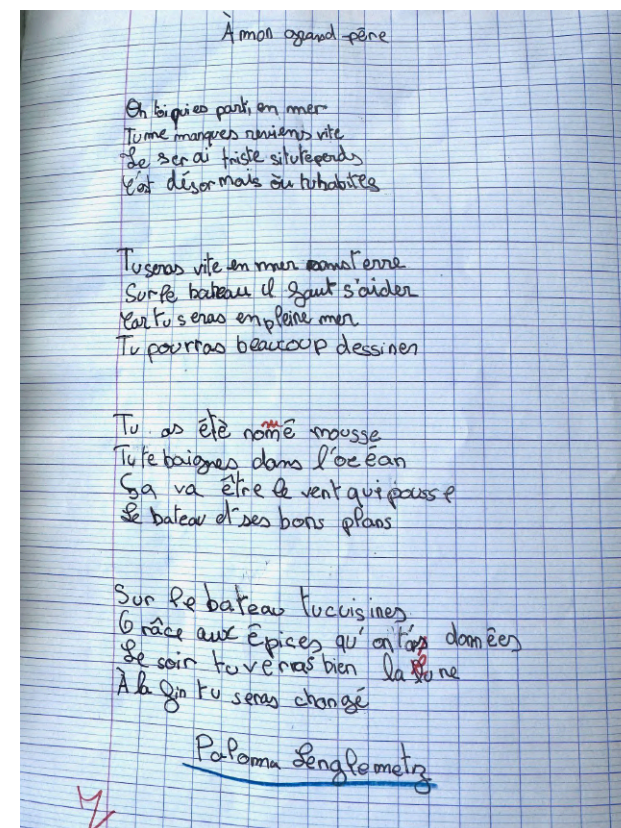 À mon grand-père
Oh toi qui es parti, en mer
Tu me manques reviens vite
Je serai triste si tu te perds
C'est désormais où tu habites
Tu seras vite en mer sans terre
Sur le bateau il faut s'aider
Car tu seras en pleine mer
Tu pourras beaucoup dessiner
Tu as été nommé mousse
Tu te baignes dans l'océan
Ça va être le vent qui pousse
Le bateau et ses bons plans
Sur le bateau tu cuisines
Grâce aux épices qu'on t'a données
Le soir tu verras bien la lune
À la fin tu seras changé
Paloma Lenglemetz